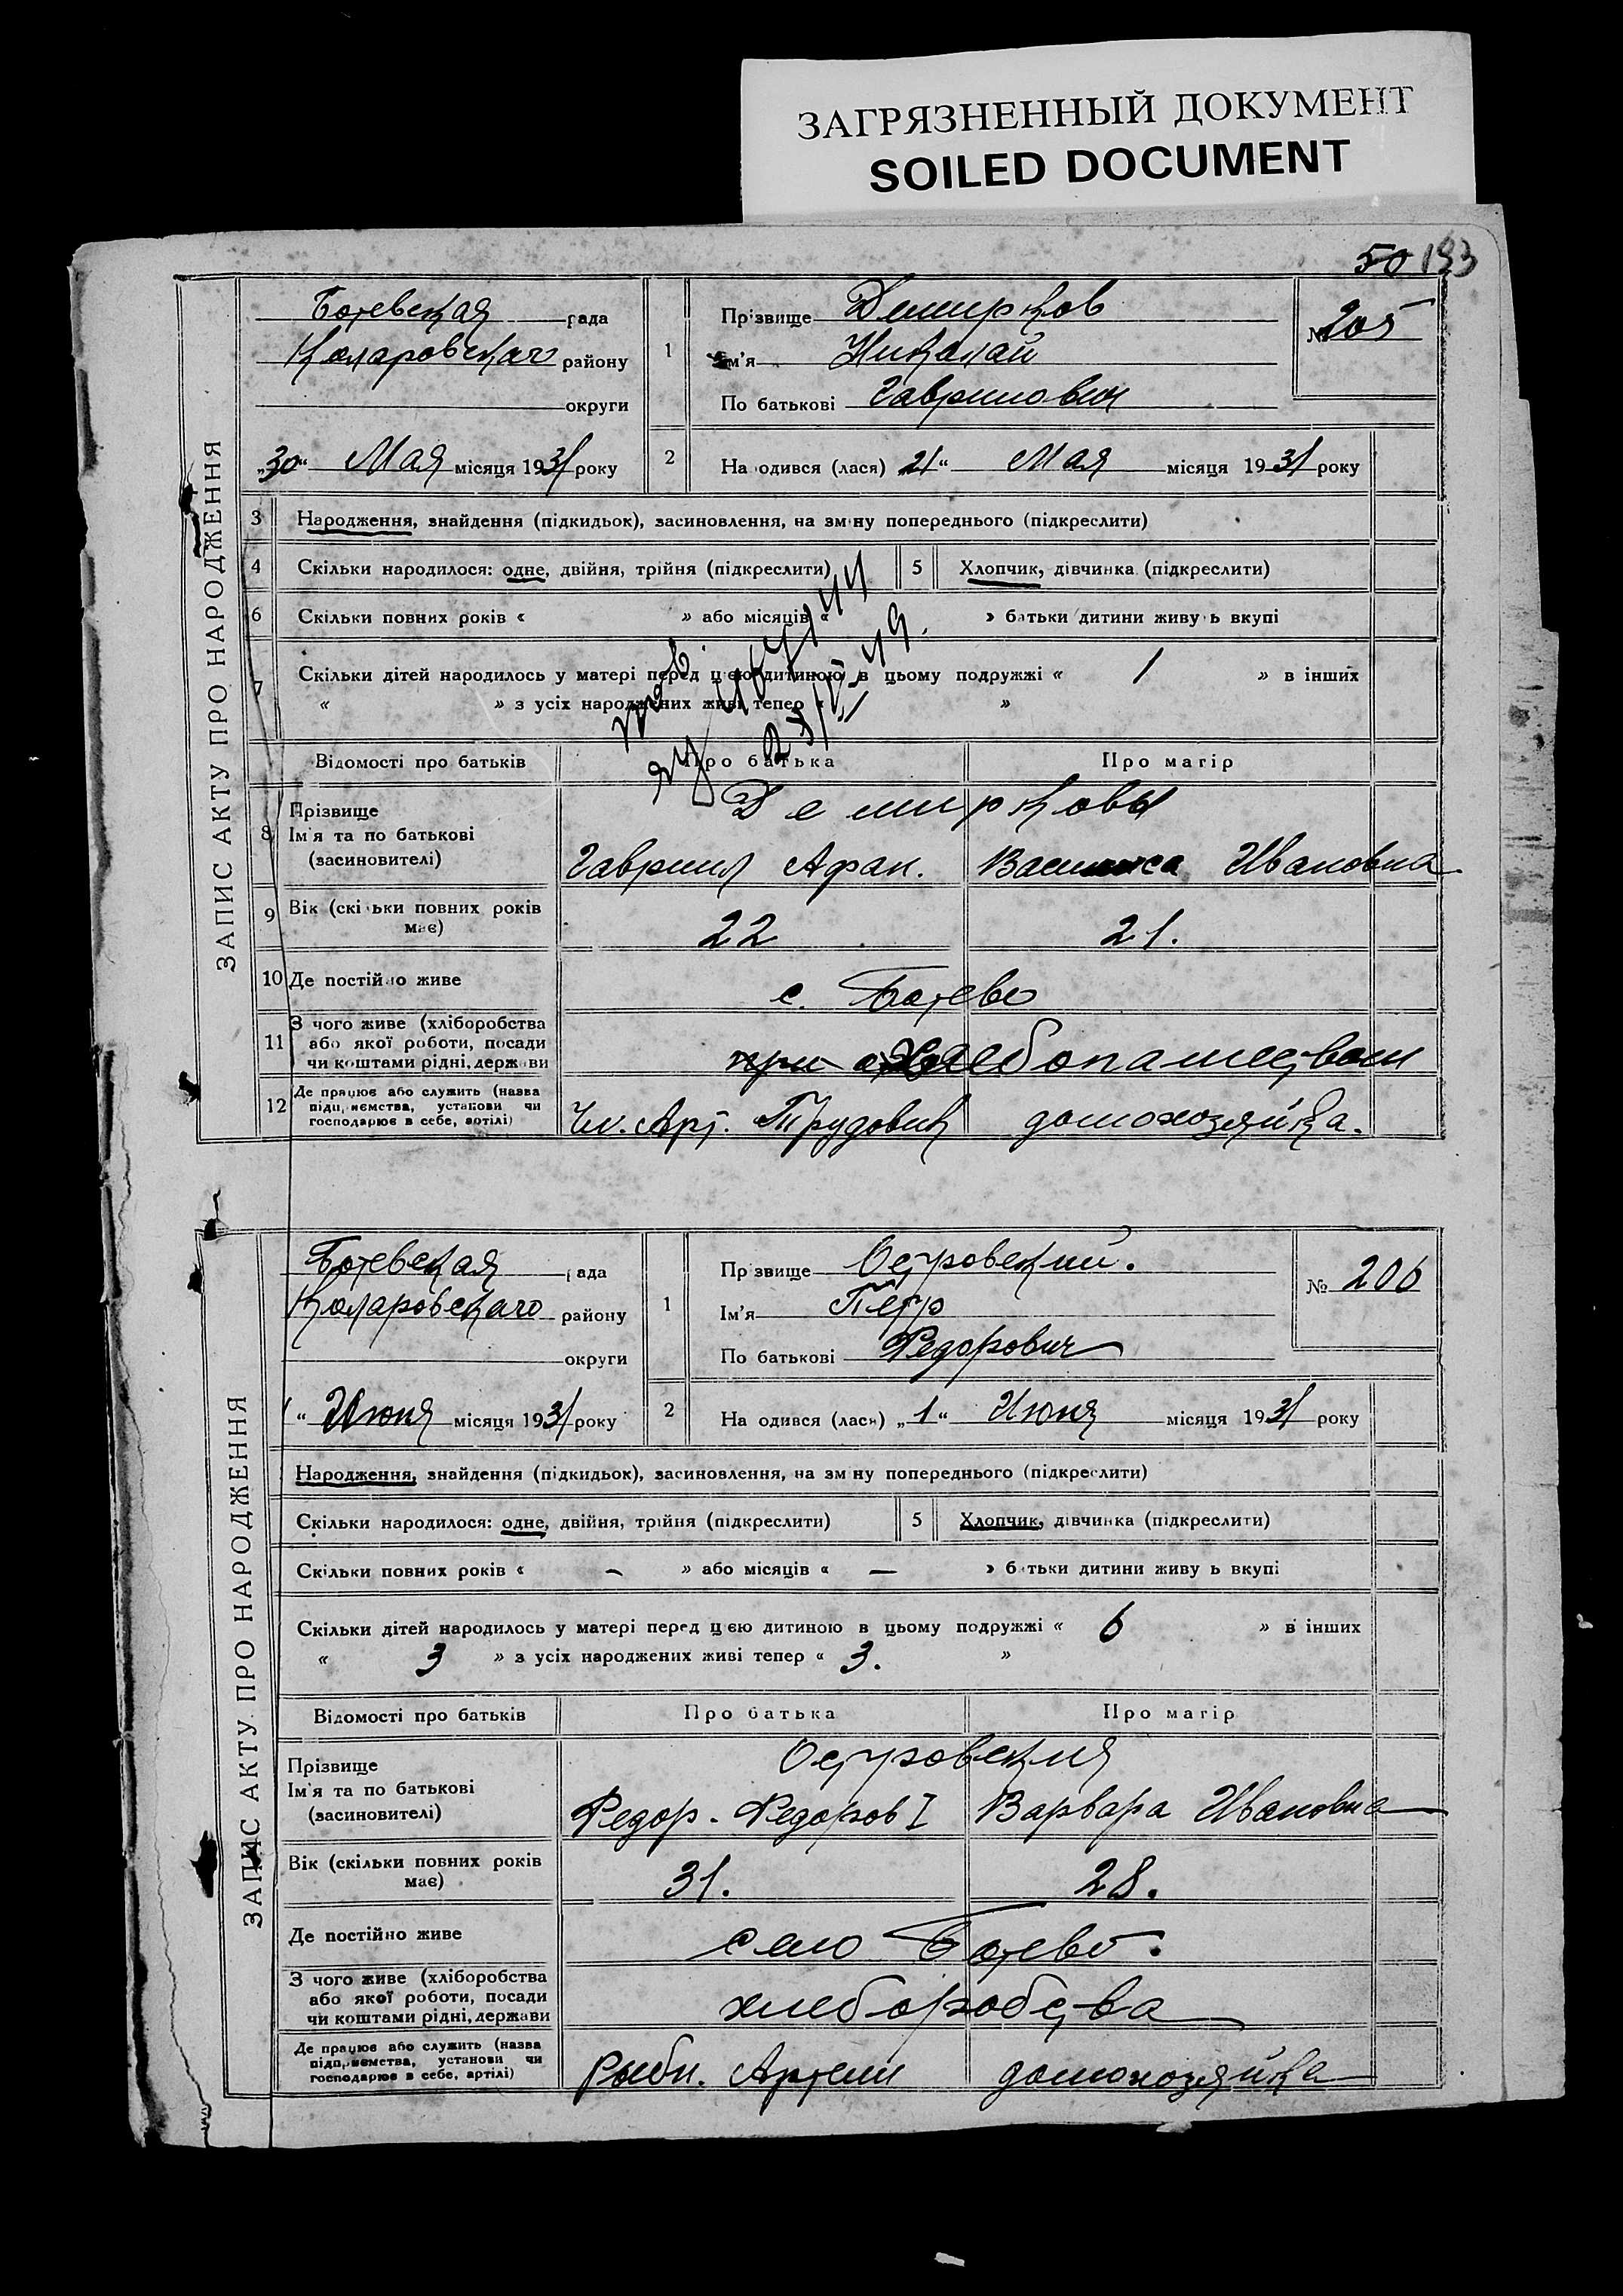 ЗАГРЯЗНЕННЫЙ ДОКУМЕНТ
SOILED DOCUMENT
50 193
ЗАПИС АКТУ ПРО НАРОДЖЕННЯ
Ботевская рада
Коларовскаго району
округи
"30" Мая місяця 1931 року
1 Прізвище Демирков
Ім'я Николай
По батькові Гаврилович
№ 205
2 На одився (лася) 21 " Мая місяця 1931 року
3 Народження, знайдення (підкидьок), засиновлення, на зміну попереднього (підкреслити)
4 Скільки народилося: одне, двійня, трійня (підкреслити) 5 Хлопчик, дівчинка (підкреслити)
6 Скільки повних років « » або місяців « » батьки дитини живу ь вкупі
7 Скільки дітей народилось у матері перед цією дитиною в цьому подружжі « 1 » в інших
« » з усіх народжених живі тепер « »
Відомості про батьків Про батька Про матір
8 Прізвище Демирковы
Ім'я та по батькові
(засиновителі) Гавриил Афан. Василиса Ивановна
9 Вік (скі ьки повних років
має) 22 21.
10 Де постійно живе с. Ботево
11 З чого живе (хліборобства
або якої роботи, посади
чи коштами рідні, держави хлебопашеством
12 Де працює або служить (назва
підприємства, установи чи
господарює в себе, артілі) Чл. Арт. Трудовик домохозяйка.
ЗАПИС АКТУ ПРО НАРОДЖЕННЯ
Ботевская рада
Коларовскаго району
округи
" Июня місяця 1931 року
1 Прізвище Островский.
Ім'я Петр
По батькові Федорович
№ 206
2 На одився (лася) „1" Июня місяця 1931 року
Народження, знайдення (підкидьок), засиновлення, на зм ну попереднього (підкреслити)
Скільки народилося: одне, двійня, трійня (підкреслити) 5 Хлопчик, дівчинка (підкреслити)
Скільки повних років « – » або місяців « – » б тьки дитини живу ь вкупі
Скільки дітей народилось у матері перед цією дитиною в цьому подружжі « 6 » в інших
« 3 » з усіх народжених живі тепер « 3. »
Відомості про батьків Про батька Про матір
Прізвище Островския
Ім'я та по батькові
(засиновителі) Федор. Федоров I Варвара Ивановна
Вік (скільки повних років
має) 31. 28.
Де постійно живе село Ботево.
З чого живе (хліборобства
або якої роботи, посади
чи коштами рідні, держави хлеборобства
Де працює або служить (назва
підприємства, установи чи
господарює в себе, артілі) Рыбн. Артели домохозяйка